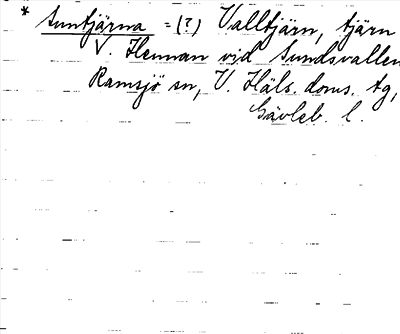 * Suntjärna = (?) Valltjärn, tjärn
V. Hennan vid Sundsvallen
Ramsjö sn, V. Häls. doms. tg,
Gävleb. l.